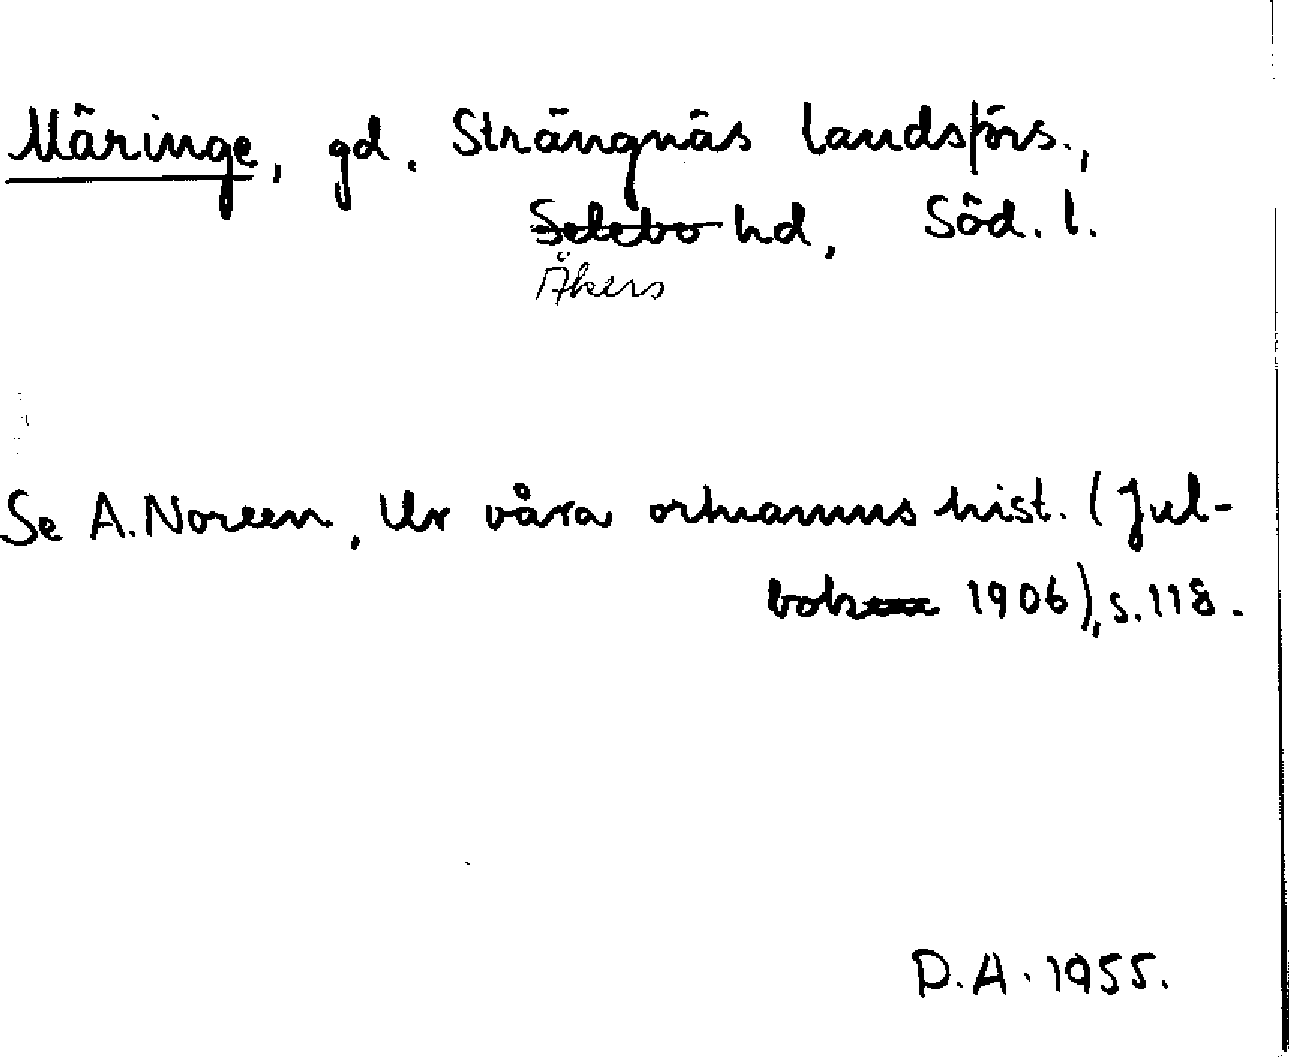 Märinge, gd. Strängnäs landsförs.,
Selebo hd, Söd. l.
Åkers
Se A. Noreen, Ur våra ortnamns hist. (Jul-
bok 1906), s. 118.
D.A. 1955.